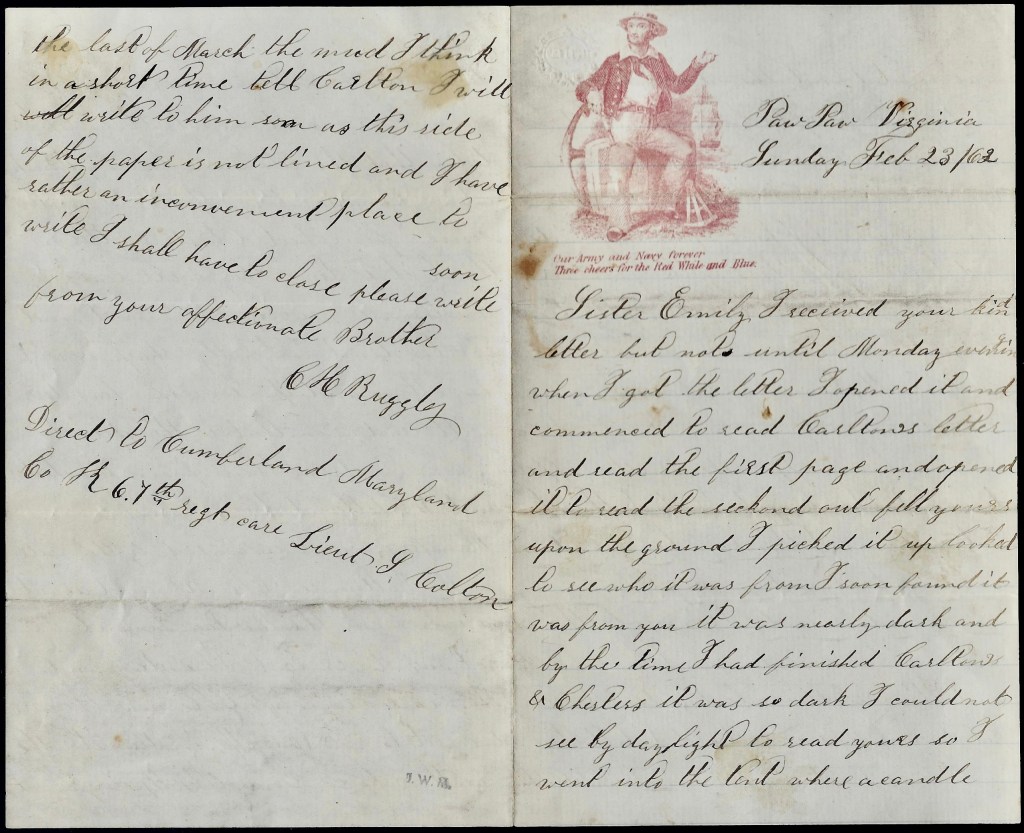 the last of March the mud I think
in a short time tell Carlton I will
will write to him soon as this side
of the paper is not lined and I have
rather an inconvenient place to
write I shall have to close please write
soon
from your affectionate Brother
C H Ruggles
Direct to Cumberland Maryland
Co K 67th regt care Lieut S. Colton
J. W. M.
Paw Paw Virginia
Sunday Feb 23/62
Our Army and Navy forever
Three cheers for the Red White and Blue.
Sister Emily I received your kind
letter but not until Monday evening
when I got the letter I opened it and
commenced to read Carltons letter
and read the first page and opened
it to read the seckond out fell yours
upon the ground I picked it up looked
to see who it was from I soon found it
was from you it was nearly dark and
by the time I had finished Carltons
& Chesters it was so dark I could not
see by daylight to read yours so I
went into the tent where a candle